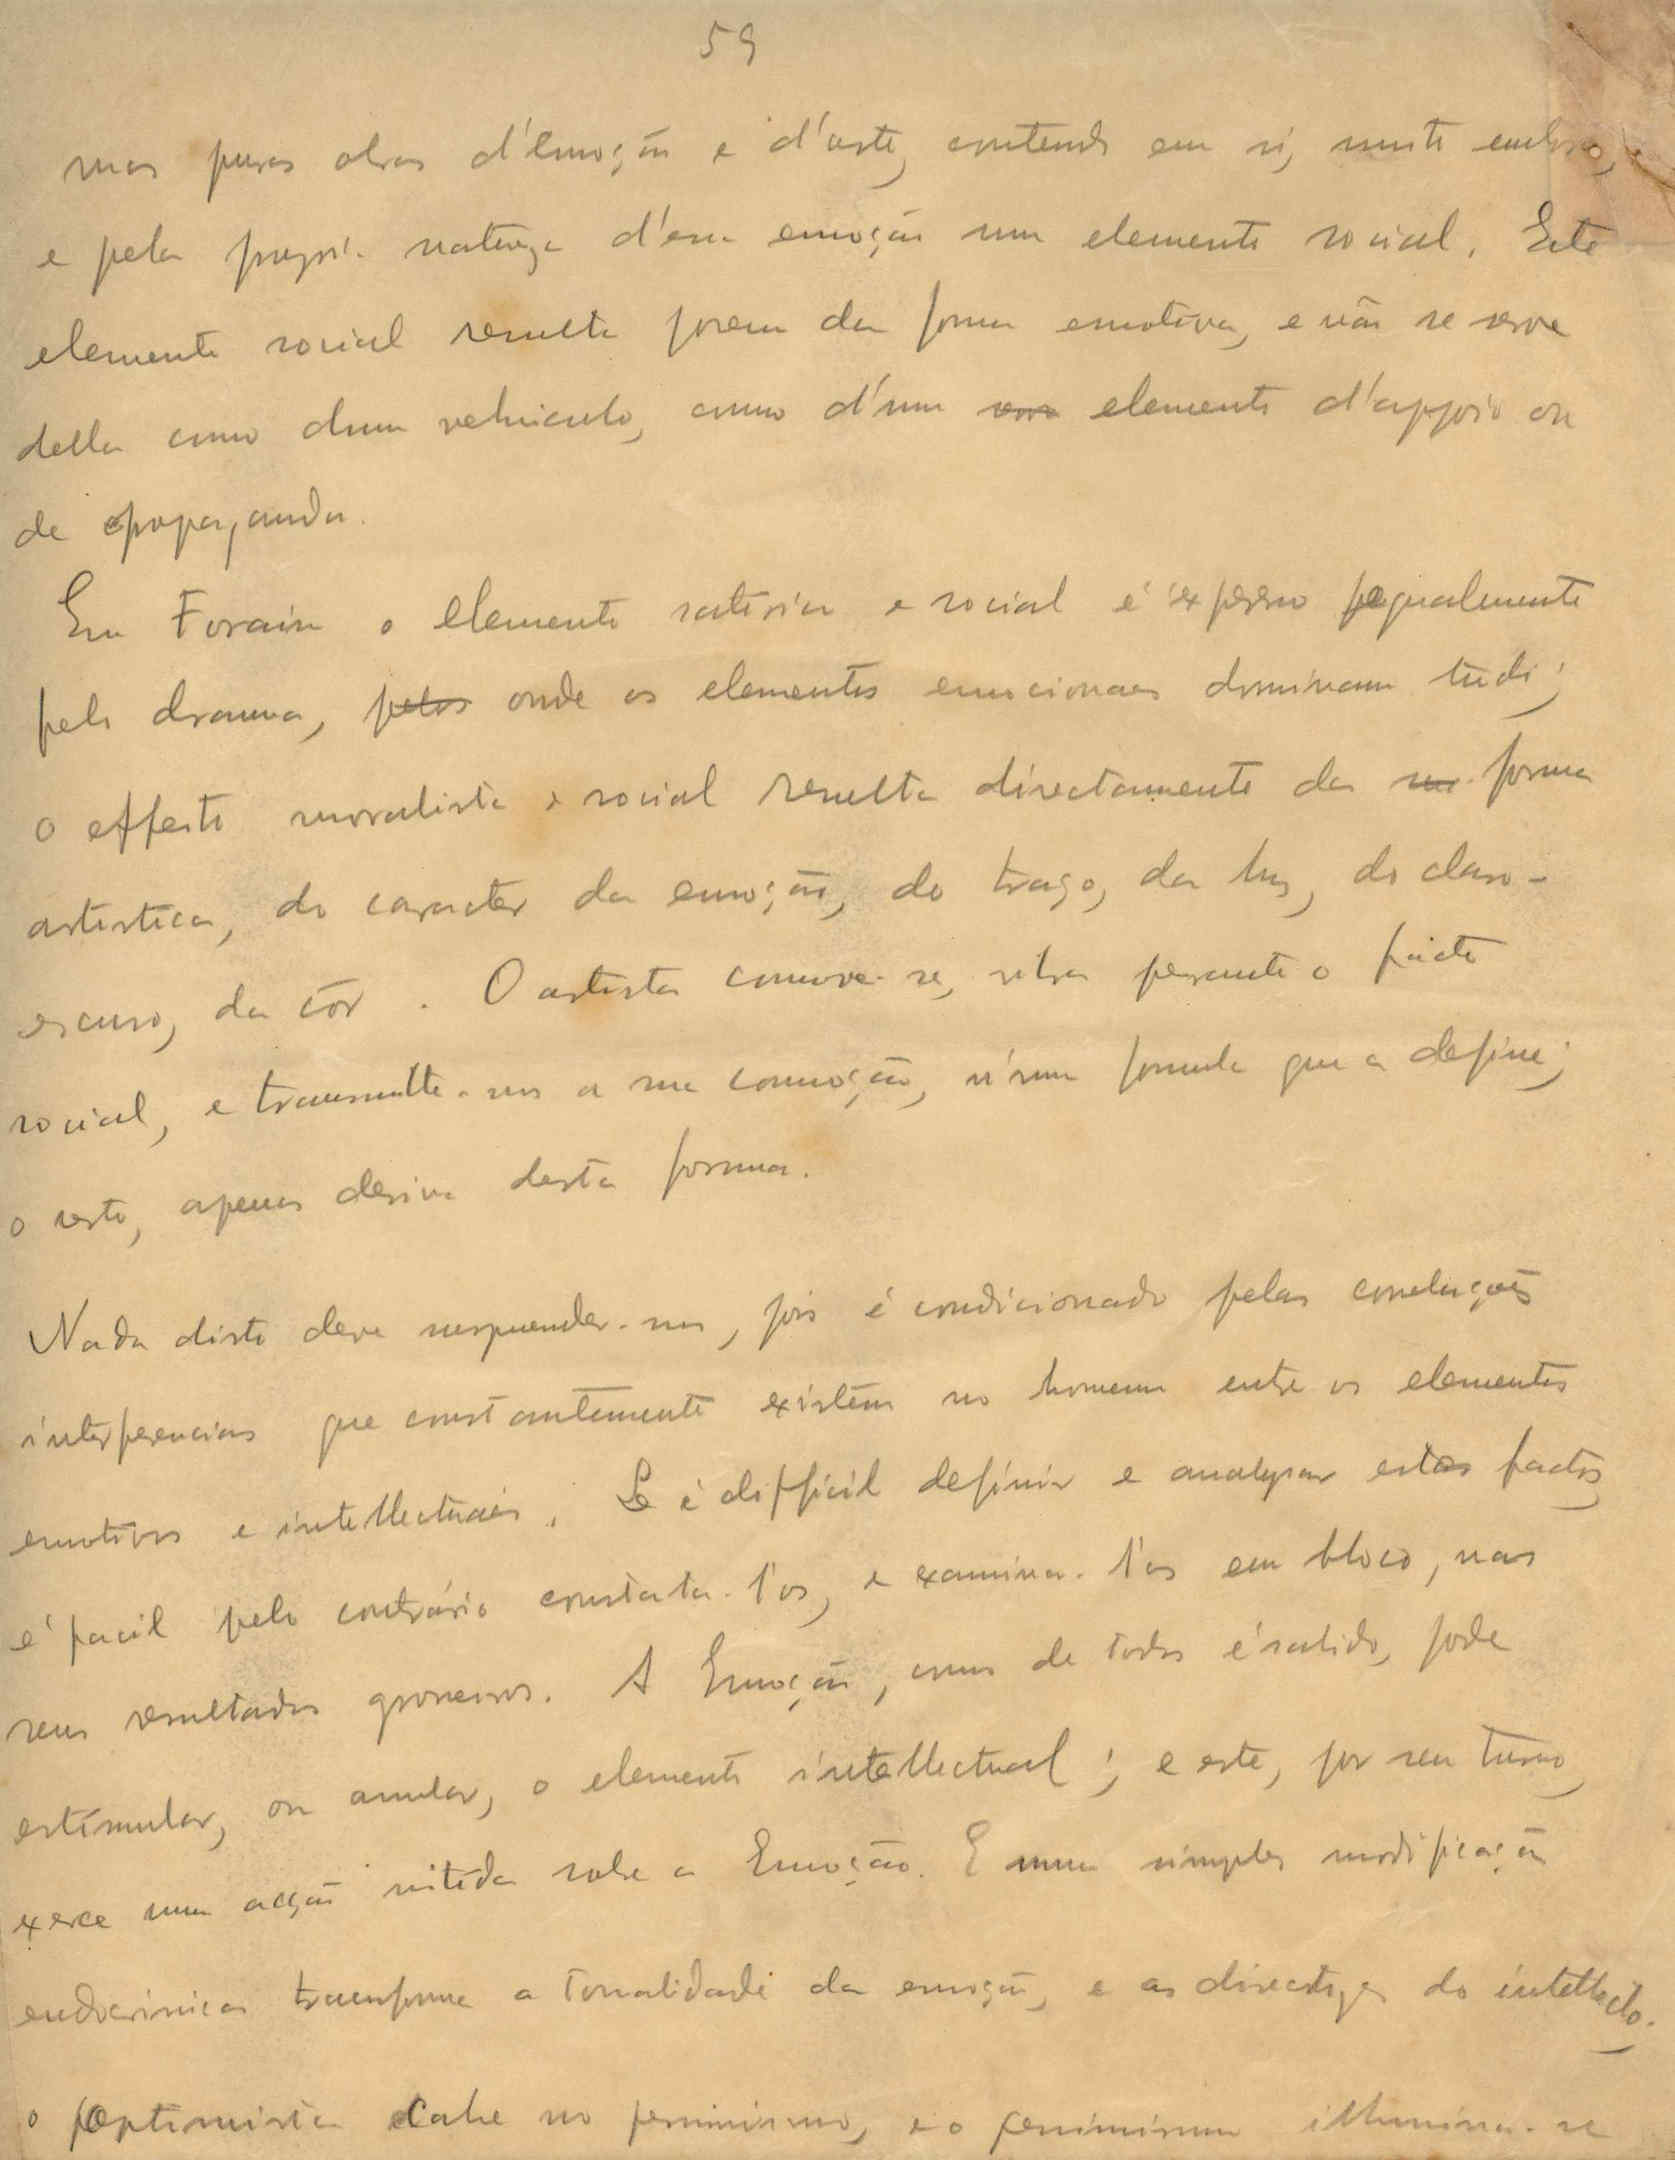 59
mas puras obras d'Emoção e d'arte, contendo em si, muito embora,
e pela propria natureza d'essa emoção um elemento social. Este
elemento social resulta porem da forma emotiva, e não se serve
della como dum vehiculo, como d'um elemento d'appoio ou
de propaganda.
Em Forain o elemento satirico e social é expresso egualmente
pelo drama, pelos onde os elementos emocionaes dominam tudo;
o effeito moralista e social resulta directamente da forma
artistica, do caracter da emoção, do traço, da luz, do claro-
escuro, da côr. O artista commove-se, vibra perante o facto
social, e transmitte-nos a sua commoção, n'uma formula que a define;
o resto, apenas deriva desta forma.
Nada disto deve surprender-nos, pois é condicionado pelas
interferencias que constantemente existem no homem entre os elementos
emotivos e intellectuaes. Se é difficil definir e analysar estes factos,
é facil pelo contrário constata-l'os, e examina-l'os em bloco, nos
seus resultados grosseiros. A Emoção, como de todos é sabido, pode
estimular, ou anular, o elemento intellectual; e este, por seu turno,
exerce uma acção nitida sobre a Emoção. E uma simples modificação
endocrinica transforma a tonalidade da emoção, e as directrizes do intellecto.
o optimista cahe no pessimismo, e o pessimismo illumina-se